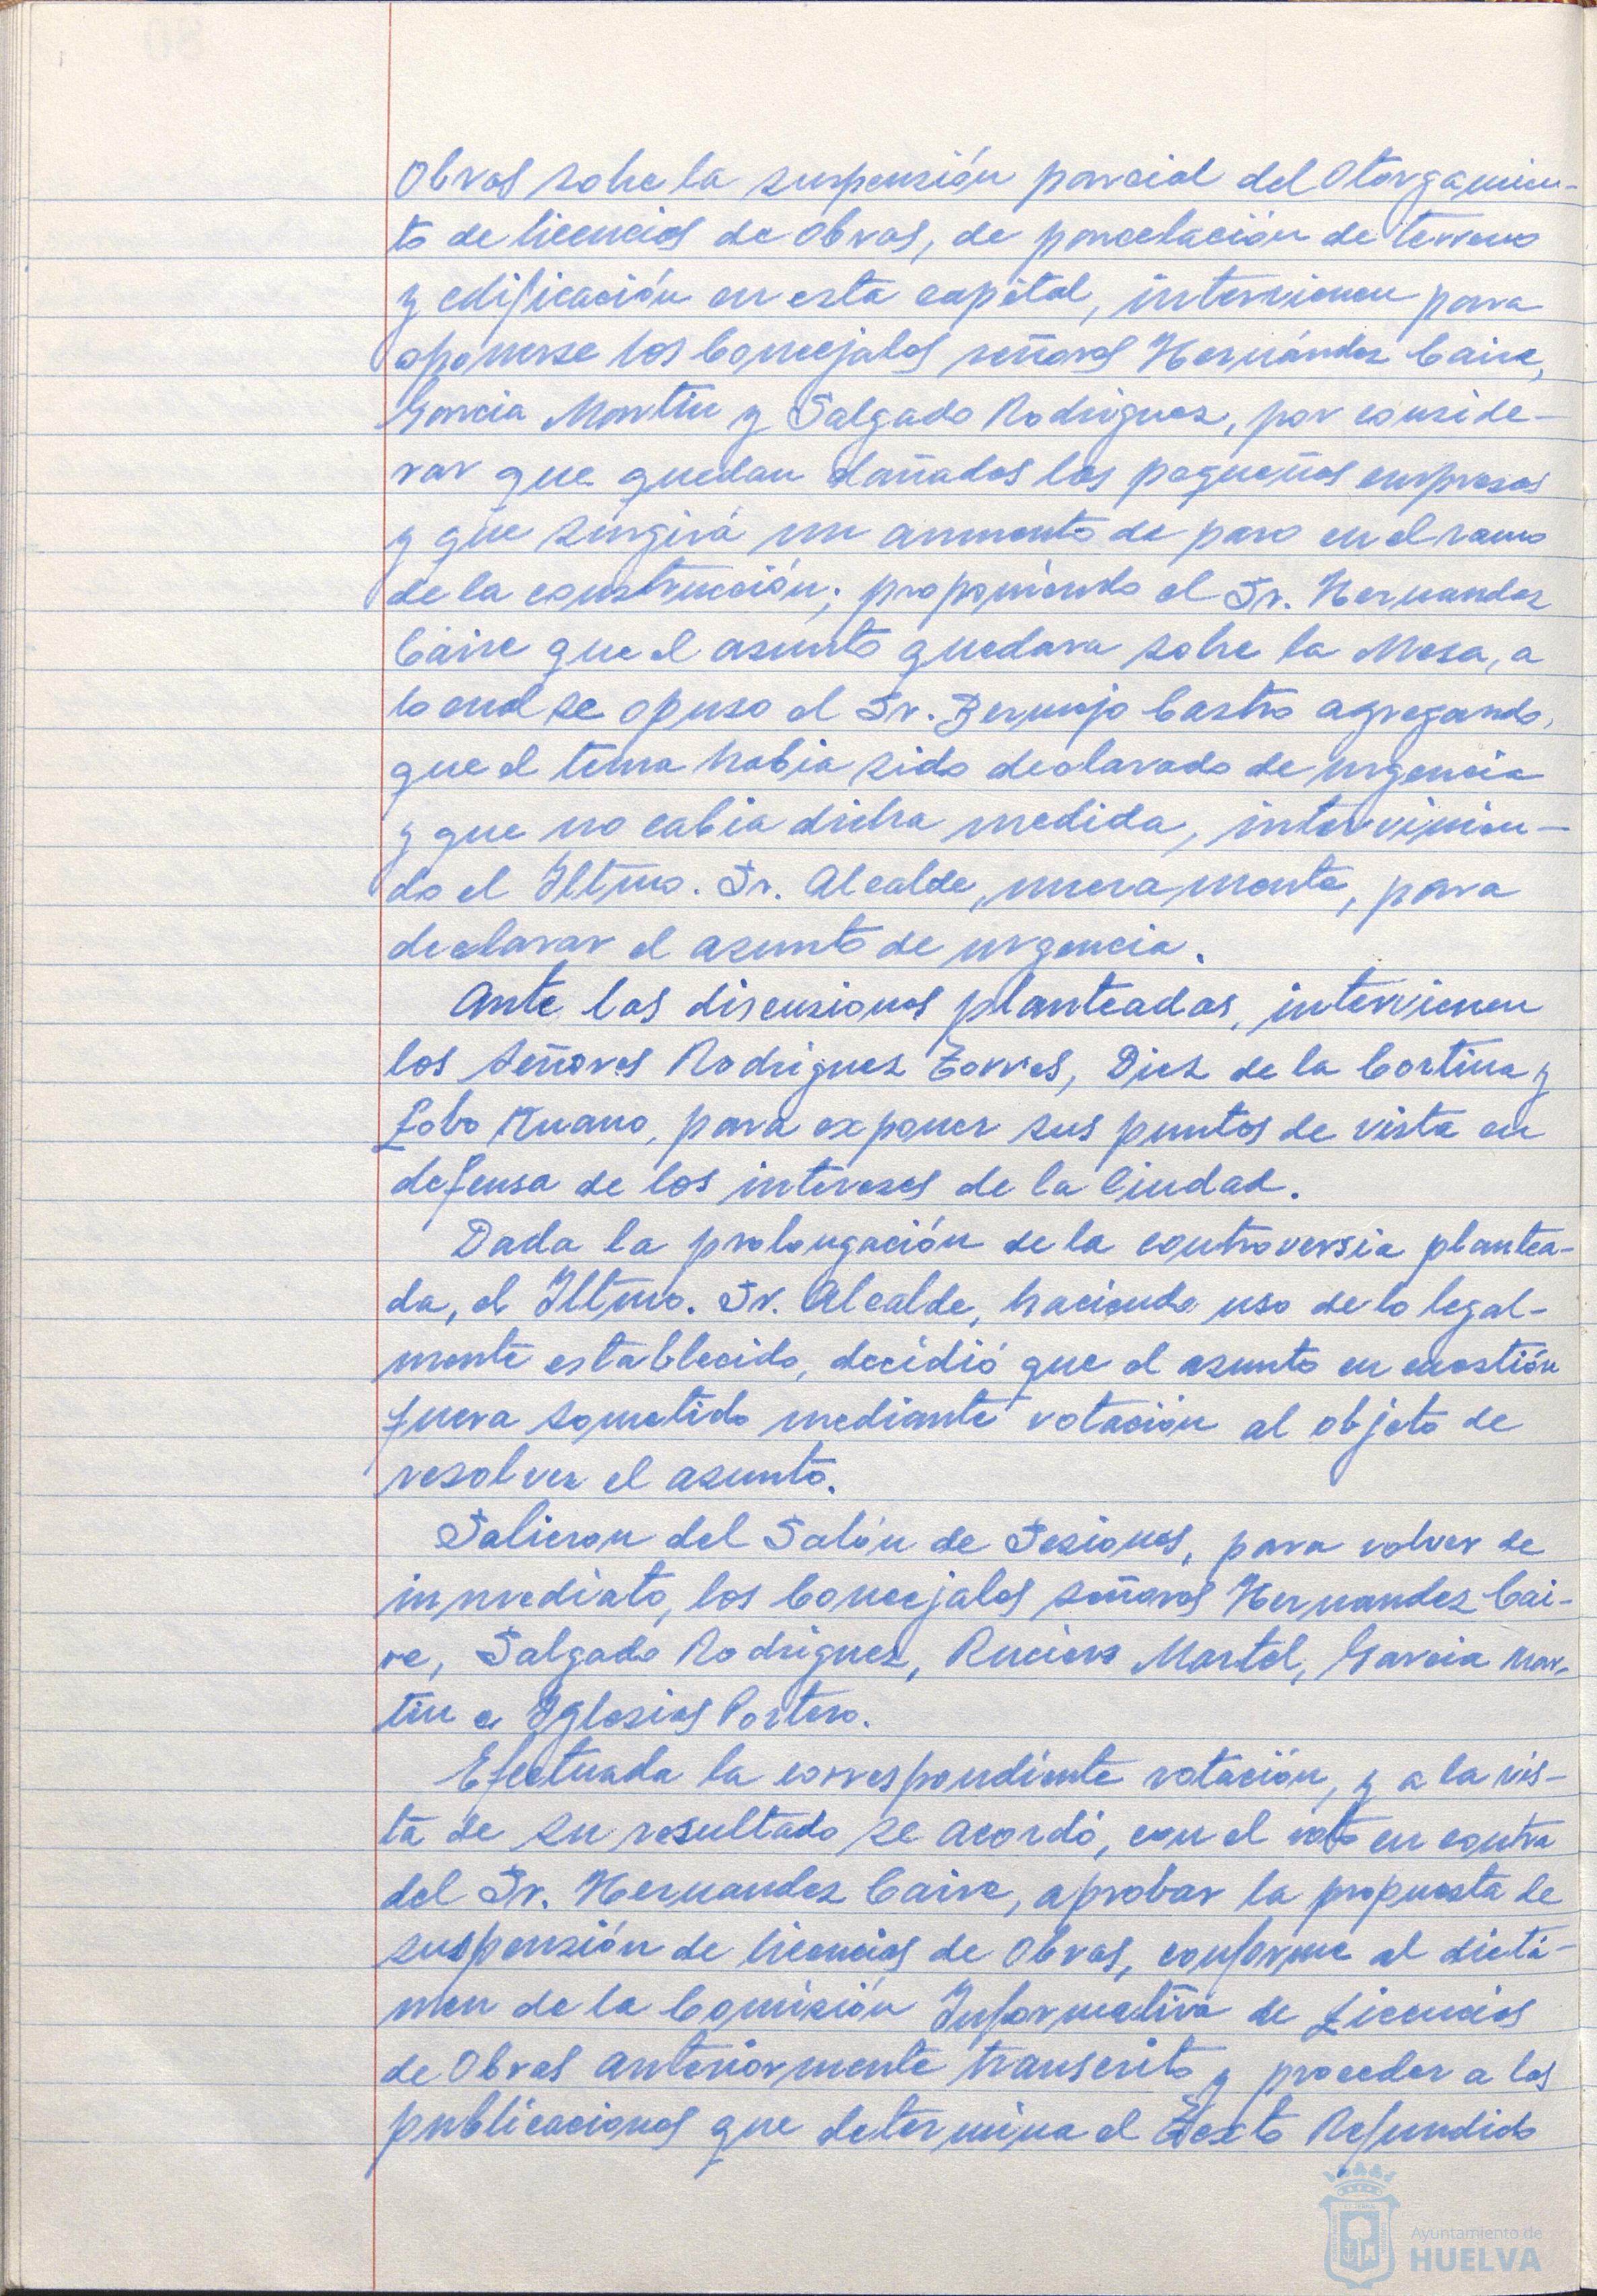 Obras sobre la suspensión parcial del Otorgamien-
to de licencias de obras, de parcelación de terreno
y edificación en esta capital, intervienen para
oponerse los Concejales señores Hernández Caire,
Garcia Martin y Salgado Rodriguez, por conside-
rar que quedan dañadas las pequeñas empresas
y que surgirá un aumento de paro en el ramo
de la construcción; proponiendo el Sr. Hernandez
Caire que el asunto quedara sobre la Mesa, a
lo cual se opuso el Sr. Bermejo Castro agregando,
que el tema habia sido declarado de urgencia
y que no cabia dicha medida, intervinien-
do el Iltmo. Sr. Alcalde, nuevamente, para
declarar el asunto de urgencia.
Ante las discusiones planteadas, intervienen
los Señores Rodriguez Torres, Diez de la Cortina y
Lobo Ruano, para exponer sus puntos de vista en
defensa de los intereses de la Ciudad.
Dada la prolongación de la controversia plantea-
da, el Iltmo. Sr. Alcalde, haciendo uso de lo legal-
mente establecido, decidió que el asunto en cuestión
fuera sometido mediante votación al objeto de
resolver el asunto.
Salieron del Salón de Sesiones, para volver de
inmediato, los Concejales señores Hernandez Cai-
re, Salgado Rodriguez, Ruciero Martel, Garcia Mar-
tin e Iglesias Portero.
Efectuada la correspondiente votación, y a la vis-
ta de su resultado se acordó, con el voto en contra
del Sr. Hernandez Caire, aprobar la propuesta de
suspensión de licencias de Obras, conforme al dictá-
men de la Comisión Informativa de Licencias
de Obras anteriormente transcrito y proceder a las
publicaciones que determina el Texto Refundido
Ayuntamiento de
HUELVA